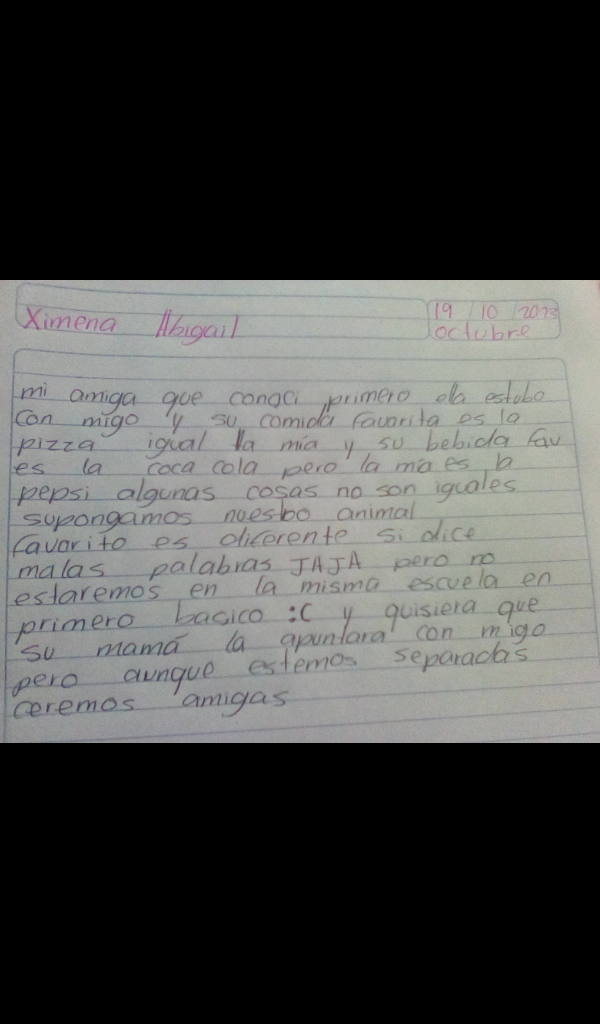 Ximena Abigail
19 / 10 / 2023
octubre
mi amiga que conoci primero ella estubo
con migo y su comida favorita es la
pizza igual la mía y su bebida fav
es la coca cola pero la mia es la
pepsi algunas cosas no son iguales
supongamos nuestro animal
favorito es diferente si dice
malas palabras JAJA pero no
estaremos en la misma escuela en
primero basico :C y quisiera que
su mamá la apuntara con migo
pero aunque estemos separadas
ceremos amigas